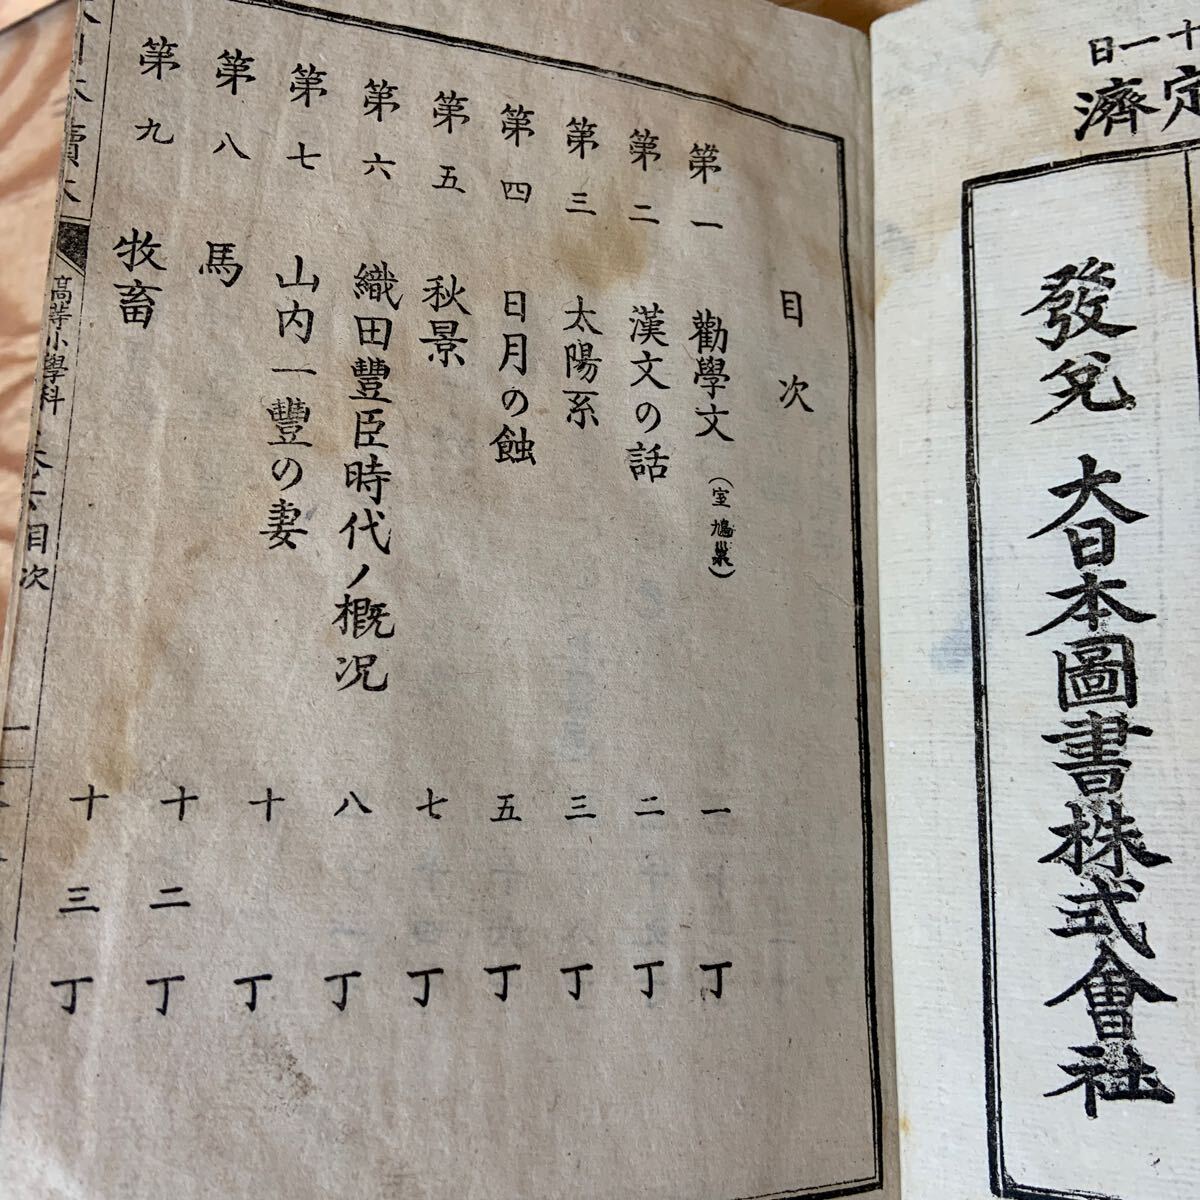 十一日
定濟
發兌 大日本圖書株式會社
目次
第一 勸學文（室鳩巢） 一丁
第二 漢文の話 二丁
第三 太陽系 三丁
第四 日月の蝕 五丁
第五 秋景 七丁
第六 織田豐臣時代ノ概况 八丁
第七 山内一豐の妻 十丁
第八 馬 十二丁
第九 牧畜 十三丁
日本讀本 高等小學科 目次 一